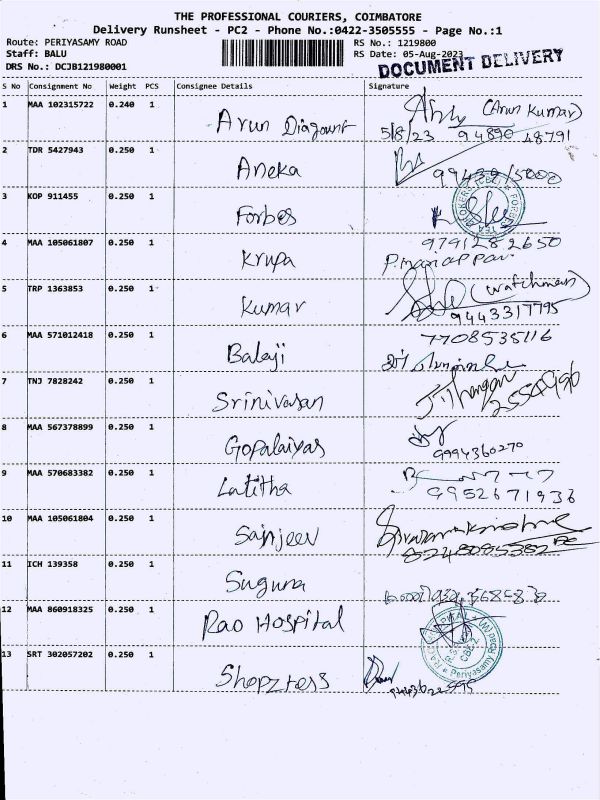 THE PROFESSIONAL COURIERS, COIMBATORE
Delivery Runsheet - PC2 - Phone No.:0422-3505555 - Page No.:1
Route: PERIYASAMY ROAD RS No.: 1219800
Staff: BALU RS Date: 05-Aug-2023
DRS No.: DCJB121980001 DOCUMENT DELIVERY
S No Consignment No Weight PCS Consignee Details Signature
1 MAA 102315722 0.240 1 Arun (Arun Kumar)
5/8/23 94890 48791
2 TDR 5427943 0.250 1 Aneka
3 KOP 911455 0.250 1 Forbes
FORBES TEA BROKERS (CBE)
9791282650
4 MAA 105061807 0.250 1 Krupa P.mariappan
5 TRP 1363853 0.250 1 Kumar (watchman)
9443317795
6 MAA 571012418 0.250 1 Balaji 7708535116
7 TNJ 7828242 0.250 1 Srinivasan
8 MAA 567378899 0.250 1 Gopalaiyas
9994360270
9 MAA 570683382 0.250 1 Latitha
9952671936
10 MAA 105061804 0.250 1 Sanjeev
11 ICH 139358 0.250 1 Suguna
12 MAA 860918325 0.250 1 Rao Hospital
13 SRT 302057202 0.250 1 Shopztress